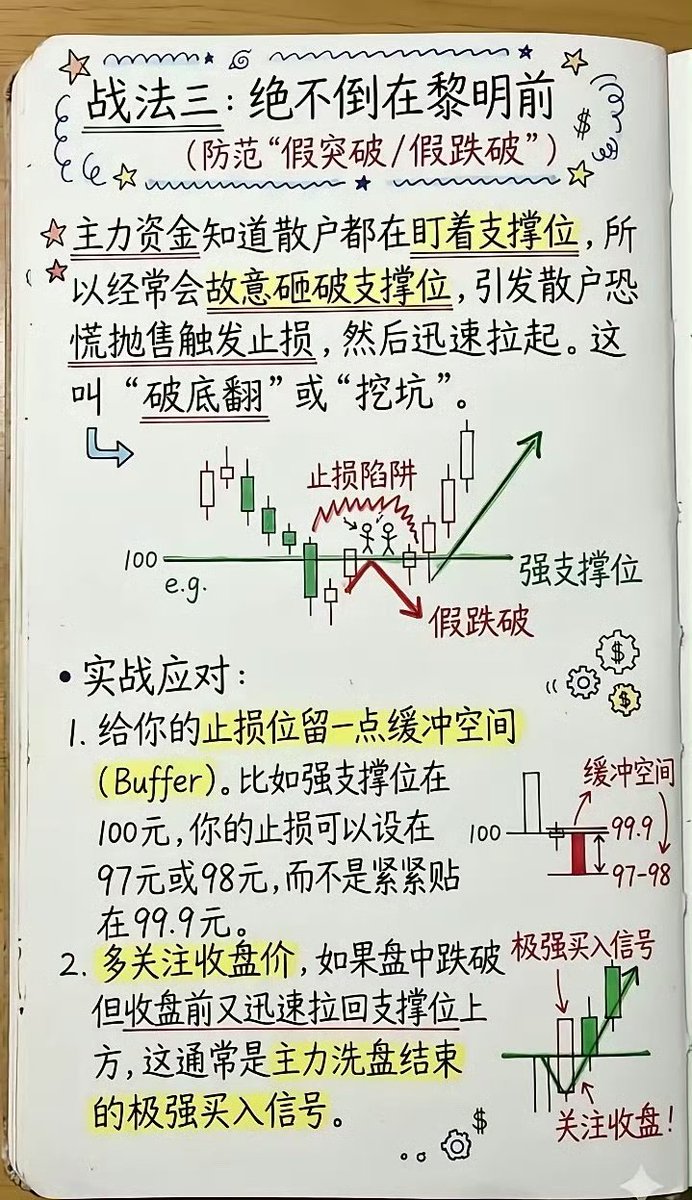 战法三：绝不倒在黎明前
（防范“假突破/假跌破”）
主力资金知道散户都在盯着支撑位，所
以经常会故意砸破支撑位，引发散户恐
慌抛售触发止损，然后迅速拉起。这
叫“破底翻”或“挖坑”。
止损陷阱
100
e.g.
强支撑位
假跌破
• 实战应对：
1. 给你的止损位留一点缓冲空间
（Buffer）。比如强支撑位在
100元，你的止损可以设在
97元或98元，而不是紧紧贴
在99.9元。
缓冲空间
100
99.9
97-98
2. 多关注收盘价，如果盘中跌破
但收盘前又迅速拉回支撑位上
方，这通常是主力洗盘结束
的极强买入信号。
极强买入信号
关注收盘！